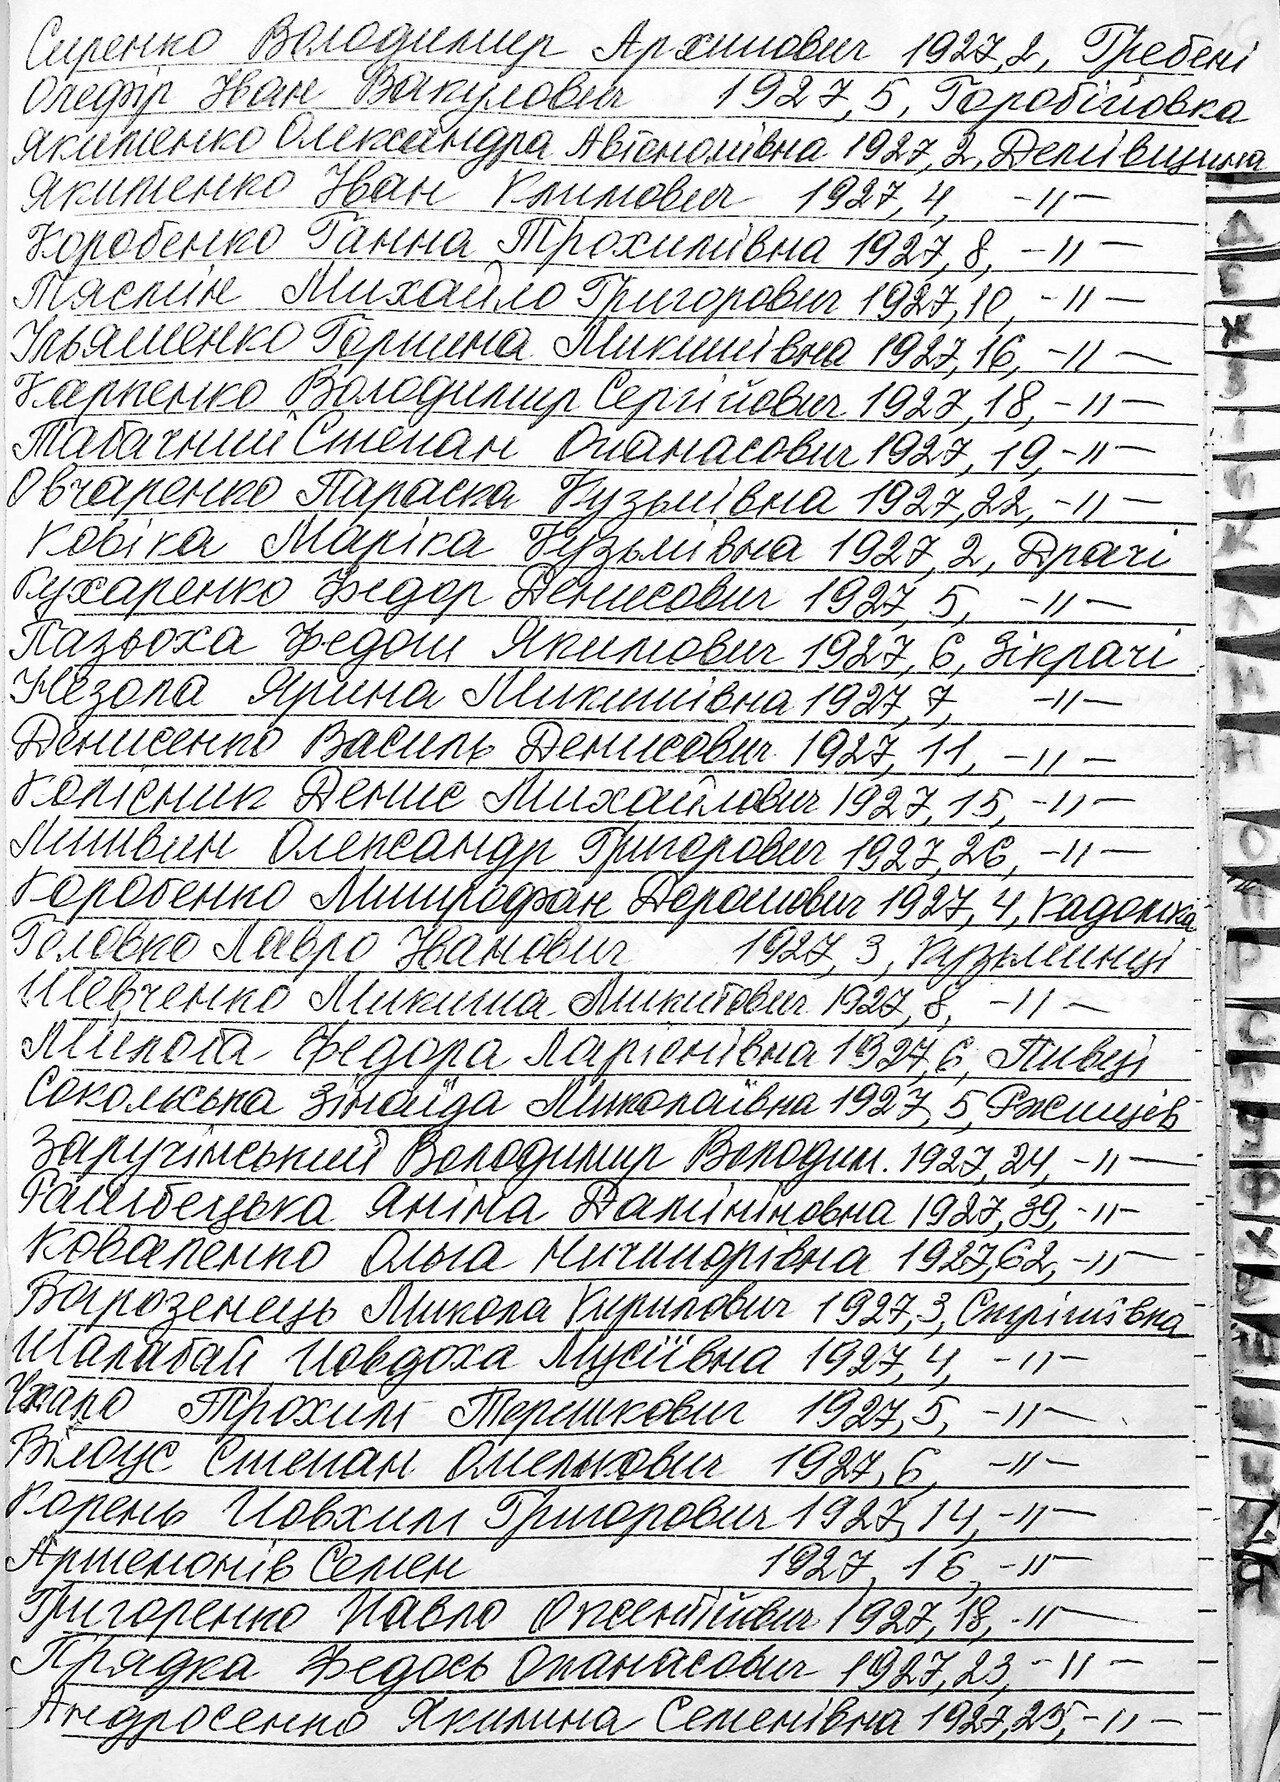 Сиренко Володимир Архипович 1927, 2, Гребені
Олефір Іван Вакулович 1927, 5, Горобіївка
Якименко Олександра Авісномівна 1927, 2, Демівщина
Якименко Іван Климович 1927, 4, -"-
Коробенко Ганна Трохимівна 1927, 8, -"-
Тясмін Михайло Григорович 1927, 10, -"-
Ільяшенко Горпина Микитівна 1927, 16, -"-
Карпенко Володимир Сергійович 1927, 18, -"-
Табачний Степан Опанасович 1927, 19, -"-
Овчаренко Параска Кузьмівна 1927, 22, -"-
Ковіка Маріка Кузьмівна 1927, 2, Драчі
Кухаренко Федор Денисович 1927, 5, -"-
Пазьоха Федот Якимович 1927, 6, Зікрачі
Незола Ярина Микитівна 1927, 7, -"-
Денисенко Василь Денисович 1927, 11, -"-
Колісник Денис Михайлович 1927, 15, -"-
Литвин Олександр Григорович 1927, 26, -"-
Коробенко Митрофан Дорошович 1927, 4, Кадомка
Головко Лавро Іванович 1927, 3, Кузьминці
Шевченко Микита Микитович 1927, 8, -"-
Мирота Федора Ларіонівна 1927, 6, Пивці
Сокольська Зінаїда Миколаївна 1927, 5, Ржищів
Заручінський Володимир Володим. 1927, 24, -"-
Рашбецька Яніна Даміниновна 1927, 39, -"-
Коваленко Ольга Ничипорівна 1927, 62, -"-
Варозенець Микола Кирилович 1927, 3, Стрітівка
Шалабай Йовдоха Мусіївна 1927, 4, -"-
Трохим Терешкович 1927, 5, -"-
Білоус Степан Омелькович 1927, 6, -"-
Корень Йовхим Григорович 1927, 14, -"-
Артемонів Семен 1927, 16, -"-
Григоренко Павло Оксентійович 1927, 18, -"-
Прядка Федось Опанасович 1927, 23, -"-
Андросенко Якилина Семенівна 1927, 25, -"-